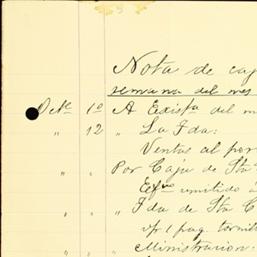 Nota de caj
semana del mes
Octe 1º A Exista del m
" 12 " La Fda:
Ventas al por
" " Por Caja de Sta
Efvo remitido á
" " " Fda de Sta C
1 paq. tornill
Ministracion: